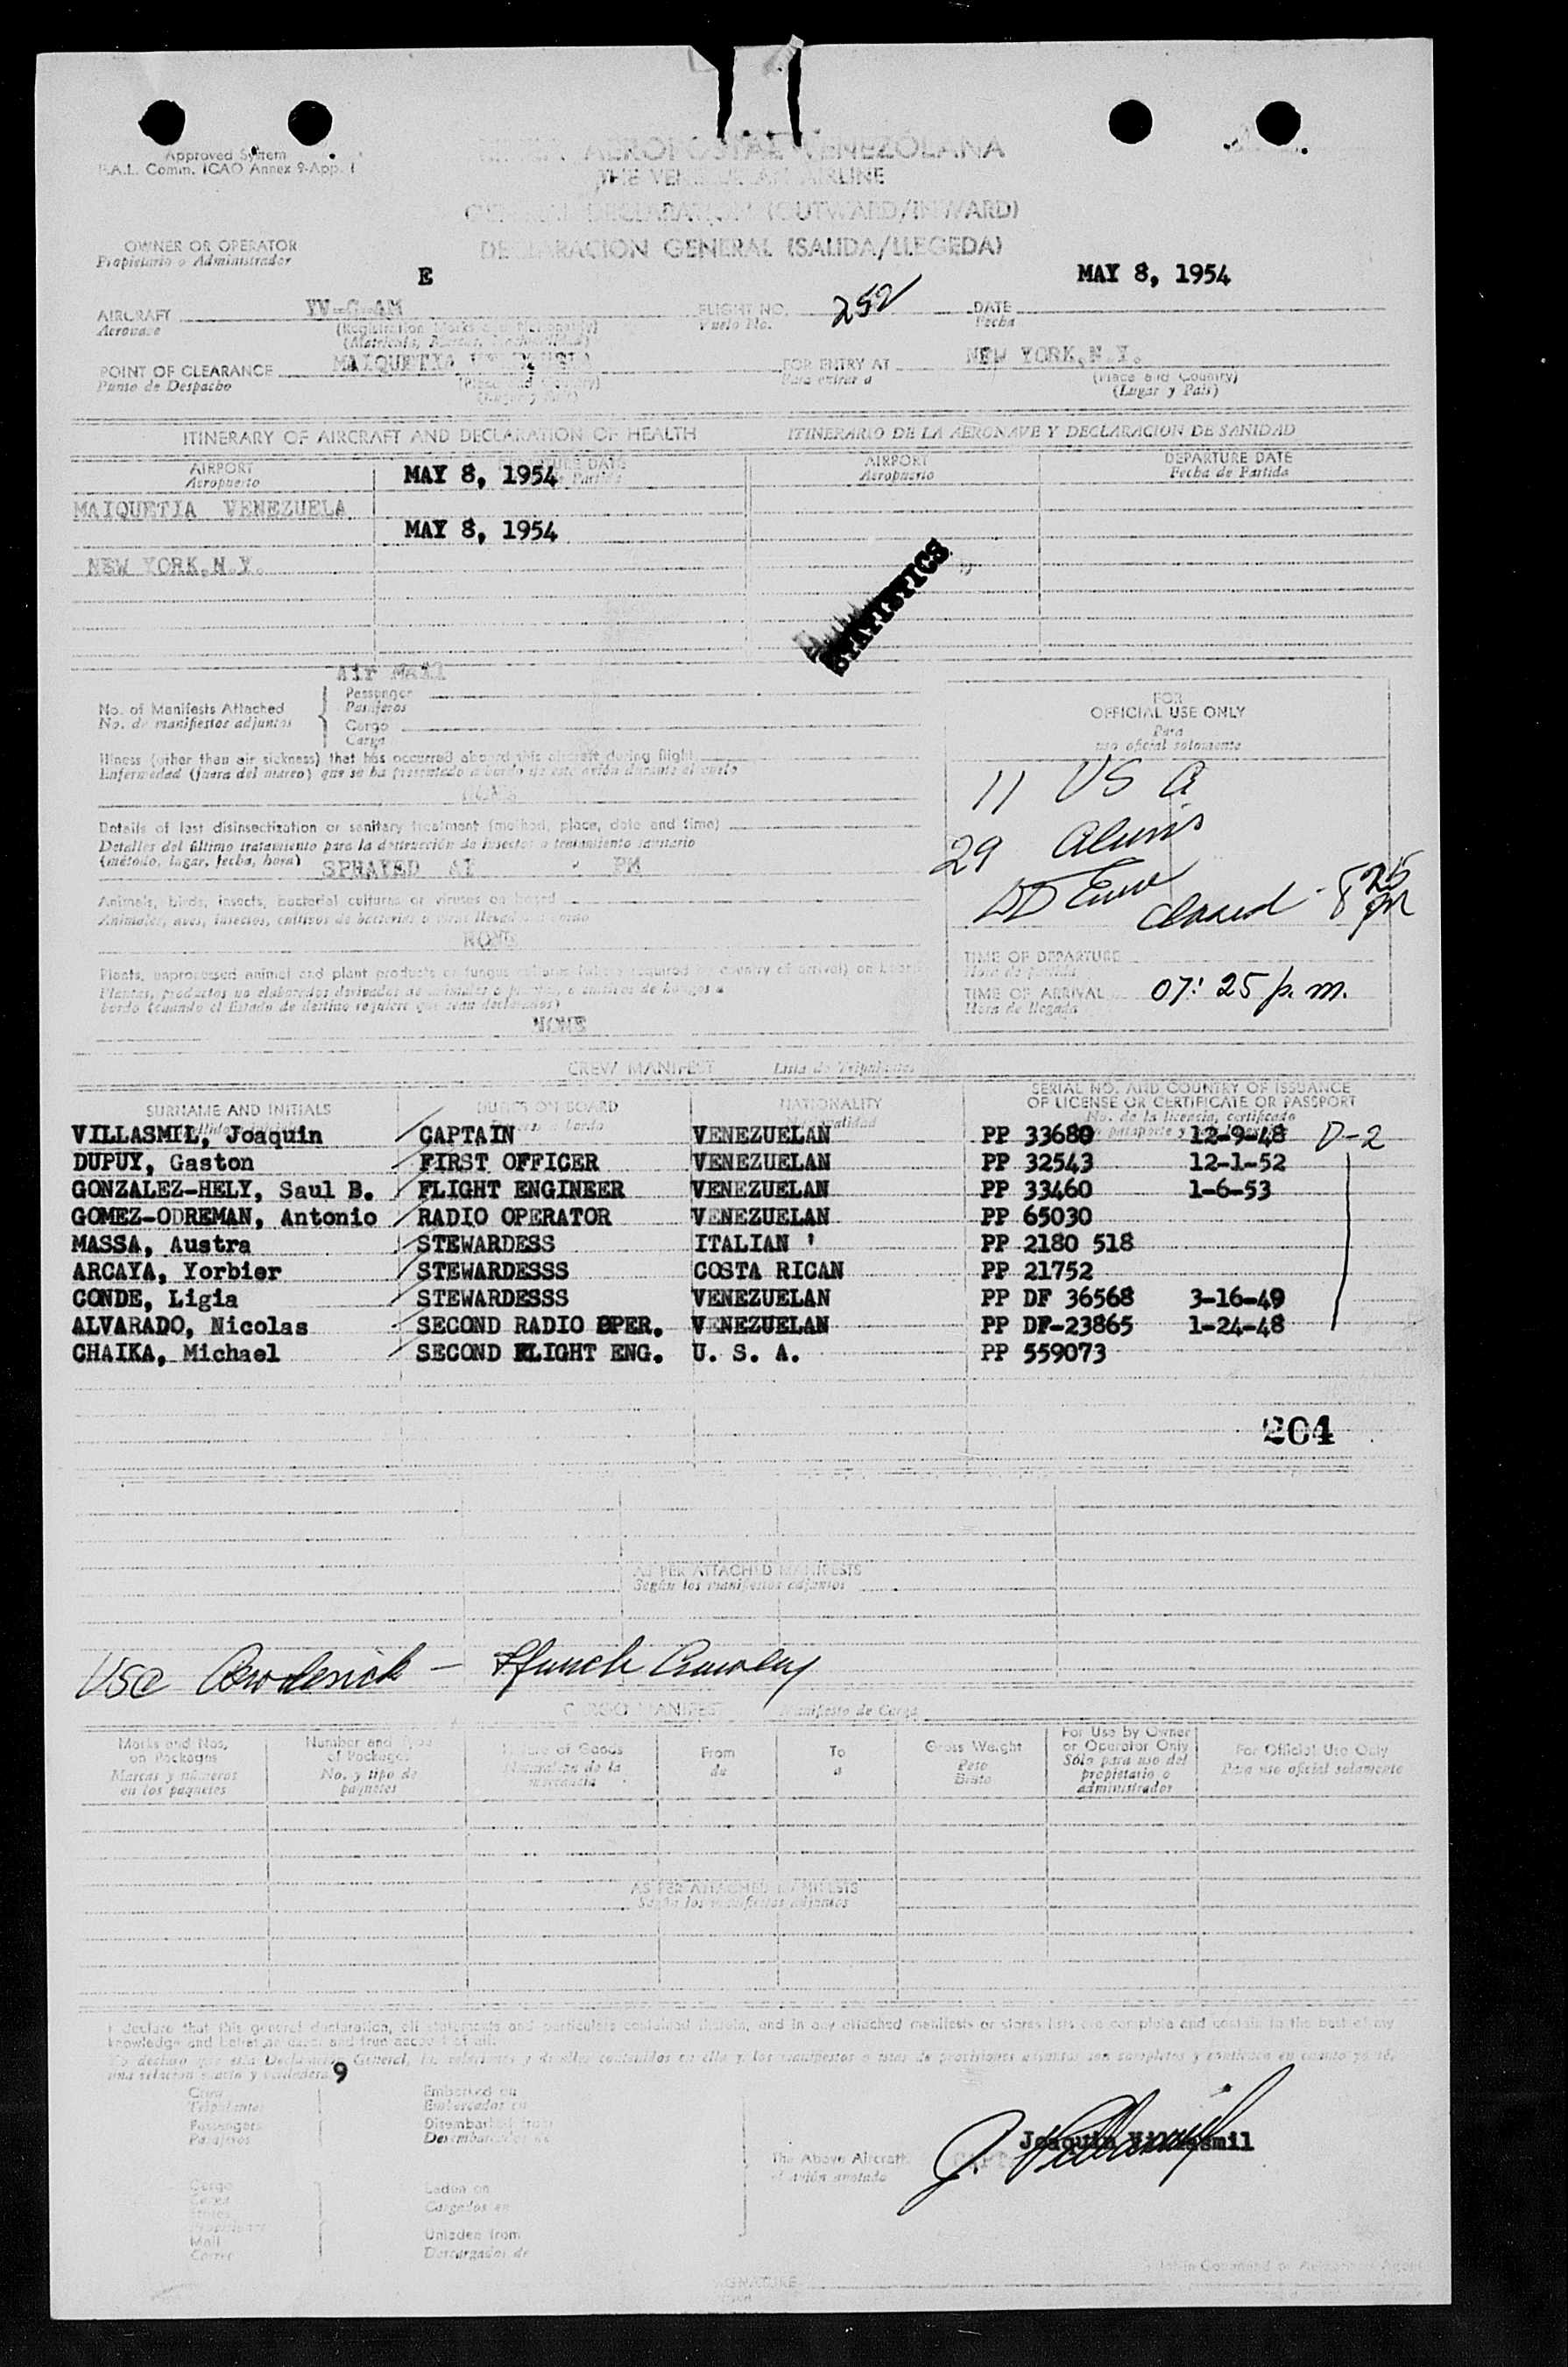 Approved System
F.A.L. Comm. ICAO Annex 9-App. 1
AEROPOSTAL VENEZOLANA
THE VENEZUELAN AIRLINE
GENERAL DECLARATION (OUTWARD/INWARD)
DECLARACION GENERAL (SALIDA/LLEGEDA)
OWNER OR OPERATOR
Propietario o Administrador
E
MAY 8, 1954
AIRCRAFT YV-C-AM FLIGHT NO. 252 DATE
Aeronave (Registration Marks and Nationality) Vuelo No. Fecha
POINT OF CLEARANCE MAIQUETIA VENEZUELA FOR ENTRY AT NEW YORK, N.Y.
Punto de Despacho (Place and Country) Para entrar a (Place and Country)
(Lugar y Pais) (Lugar y Pais)
ITINERARY OF AIRCRAFT AND DECLARATION OF HEALTH ITINERARIO DE LA AERONAVE Y DECLARACION DE SANIDAD
AIRPORT DEPARTURE DATE AIRPORT DEPARTURE DATE
Aeropuerto MAY 8, 1954 Aeropuerto Fecha de Partida
MAIQUETIA VENEZUELA
MAY 8, 1954
NEW YORK, N.Y.
STATISTICS
Air Mail
No. of Manifests Attached
No. de manifiestos adjuntos
Passenger
Pasajeros
Cargo
Carga
FOR
OFFICIAL USE ONLY
Para
uso oficial solamente
Illness (other than air sickness) that has occurred aboard this aircraft during flight
Enfermedad (fuera del mareo) que se ha presentado a bordo de este avión durante el vuelo
NONE
11 USA
Details of last disinsectization or sanitary treatment (method, place, date and time)
Detalles del último tratamiento para la destrucción de insectos o tratamiento sanitario
(método, lugar, fecha, hora) SPRAYED AT PM
29 Aliens
closed 8 25 pm
Animals, birds, insects, bacterial cultures or viruses on board
Animales, aves, insectos, cultivos de bacterias o virus llevados a bordo
NONE
TIME OF DEPARTURE
Hora de partida
TIME OF ARRIVAL 07:25 p.m.
Hora de llegada
Plants, unprocessed animal and plant products or fungus cultures (where required by country of arrival) on board
bordo (cuando el Estado de destino requiere que sean declarados)
NONE
CREW MANIFEST Lista de Tripulantes
SURNAME AND INITIALS DUTIES ON BOARD NATIONALITY SERIAL NO. AND COUNTRY OF ISSUANCE
OF LICENSE OR CERTIFICATE OR PASSPORT
No. de la licencia, certificado
VILLASMIL, Joaquin CAPTAIN VENEZUELAN PP 33680 12-9-48 D-2
DUPUY, Gaston FIRST OFFICER VENEZUELAN PP 32543 12-1-52
GONZALEZ-HELY, Saul B. FLIGHT ENGINEER VENEZUELAN PP 33460 1-6-53
GOMEZ-ODREMAN, Antonio RADIO OPERATOR VENEZUELAN PP 65030
MASSA, Austra STEWARDESS ITALIAN ' PP 2180 518
ARCAYA, Yorbier STEWARDESSS COSTA RICAN PP 21752
CONDE, Ligia STEWARDESSS VENEZUELAN PP DF 36568 3-16-49
ALVARADO, Nicolas SECOND RADIO OPER. VENEZUELAN PP DF-23865 1-24-48
CHAIKA, Michael SECOND FLIGHT ENG. U. S. A. PP 559073
204
AS PER ATTACHED MANIFESTS
Según los manifiestos adjuntos
USA Broderick –
CARGO MANIFEST Manifiesto de Carga
Marks and Nos. on Packages Number and Type of Packages Nature of Goods From To Gross Weight For Use by Owner or Operator Only For Official Use Only
Marcas y números en los paquetes No. y tipo de paquetes Naturaleza de la mercancia de a Peso Bruto Sólo para uso del propietario o administrador Para uso oficial solamente
AS PER ATTACHED MANIFESTS
Según los manifiestos adjuntos
I declare that this general declaration, all statements and particulars contained therein, and in any attached manifests or stores lists are complete and contain to the best of my
knowledge and belief an exact and true account of all.
9
Crew
Tripulantes
Passengers
Pasajeros
Embarked on
Embarcados en
Disembarked from
Desembarcados de
The Above Aircraft
el avión anotado
Joaquin Villasmil
J. Villasmil
Cargo
Carga
Stores
Mail
Correo
Laden on
Cargados en
Unladen from
Descargados de
SIGNATURE